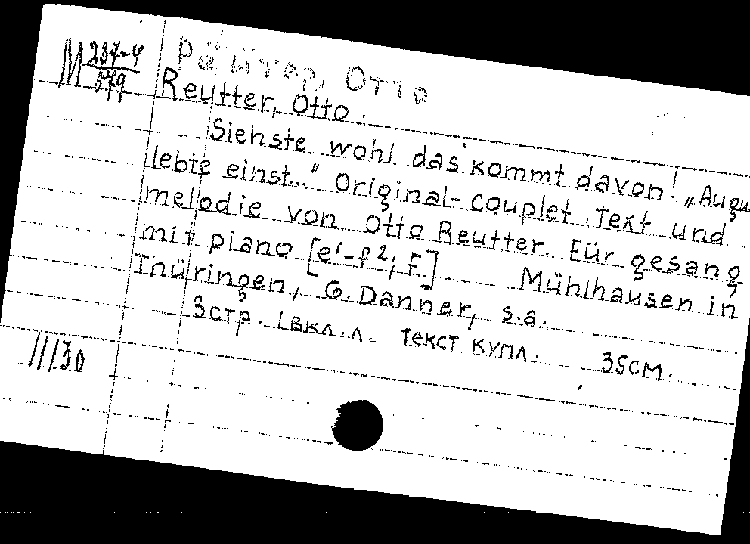 М 237-4/579
Рäuтер, Отто
Reutter, Otto.
Siehste wohl das kommt davon! „Augu
lebte einst..." Original-couplet. Text und
melodie von Otto Reutter. Für gesang
mit piano [e¹-f²; F.]. Mühlhausen in
Thüringen, G. Danner, s.a.
3 стр. 1 вкл. л. текст купл. 35 см.